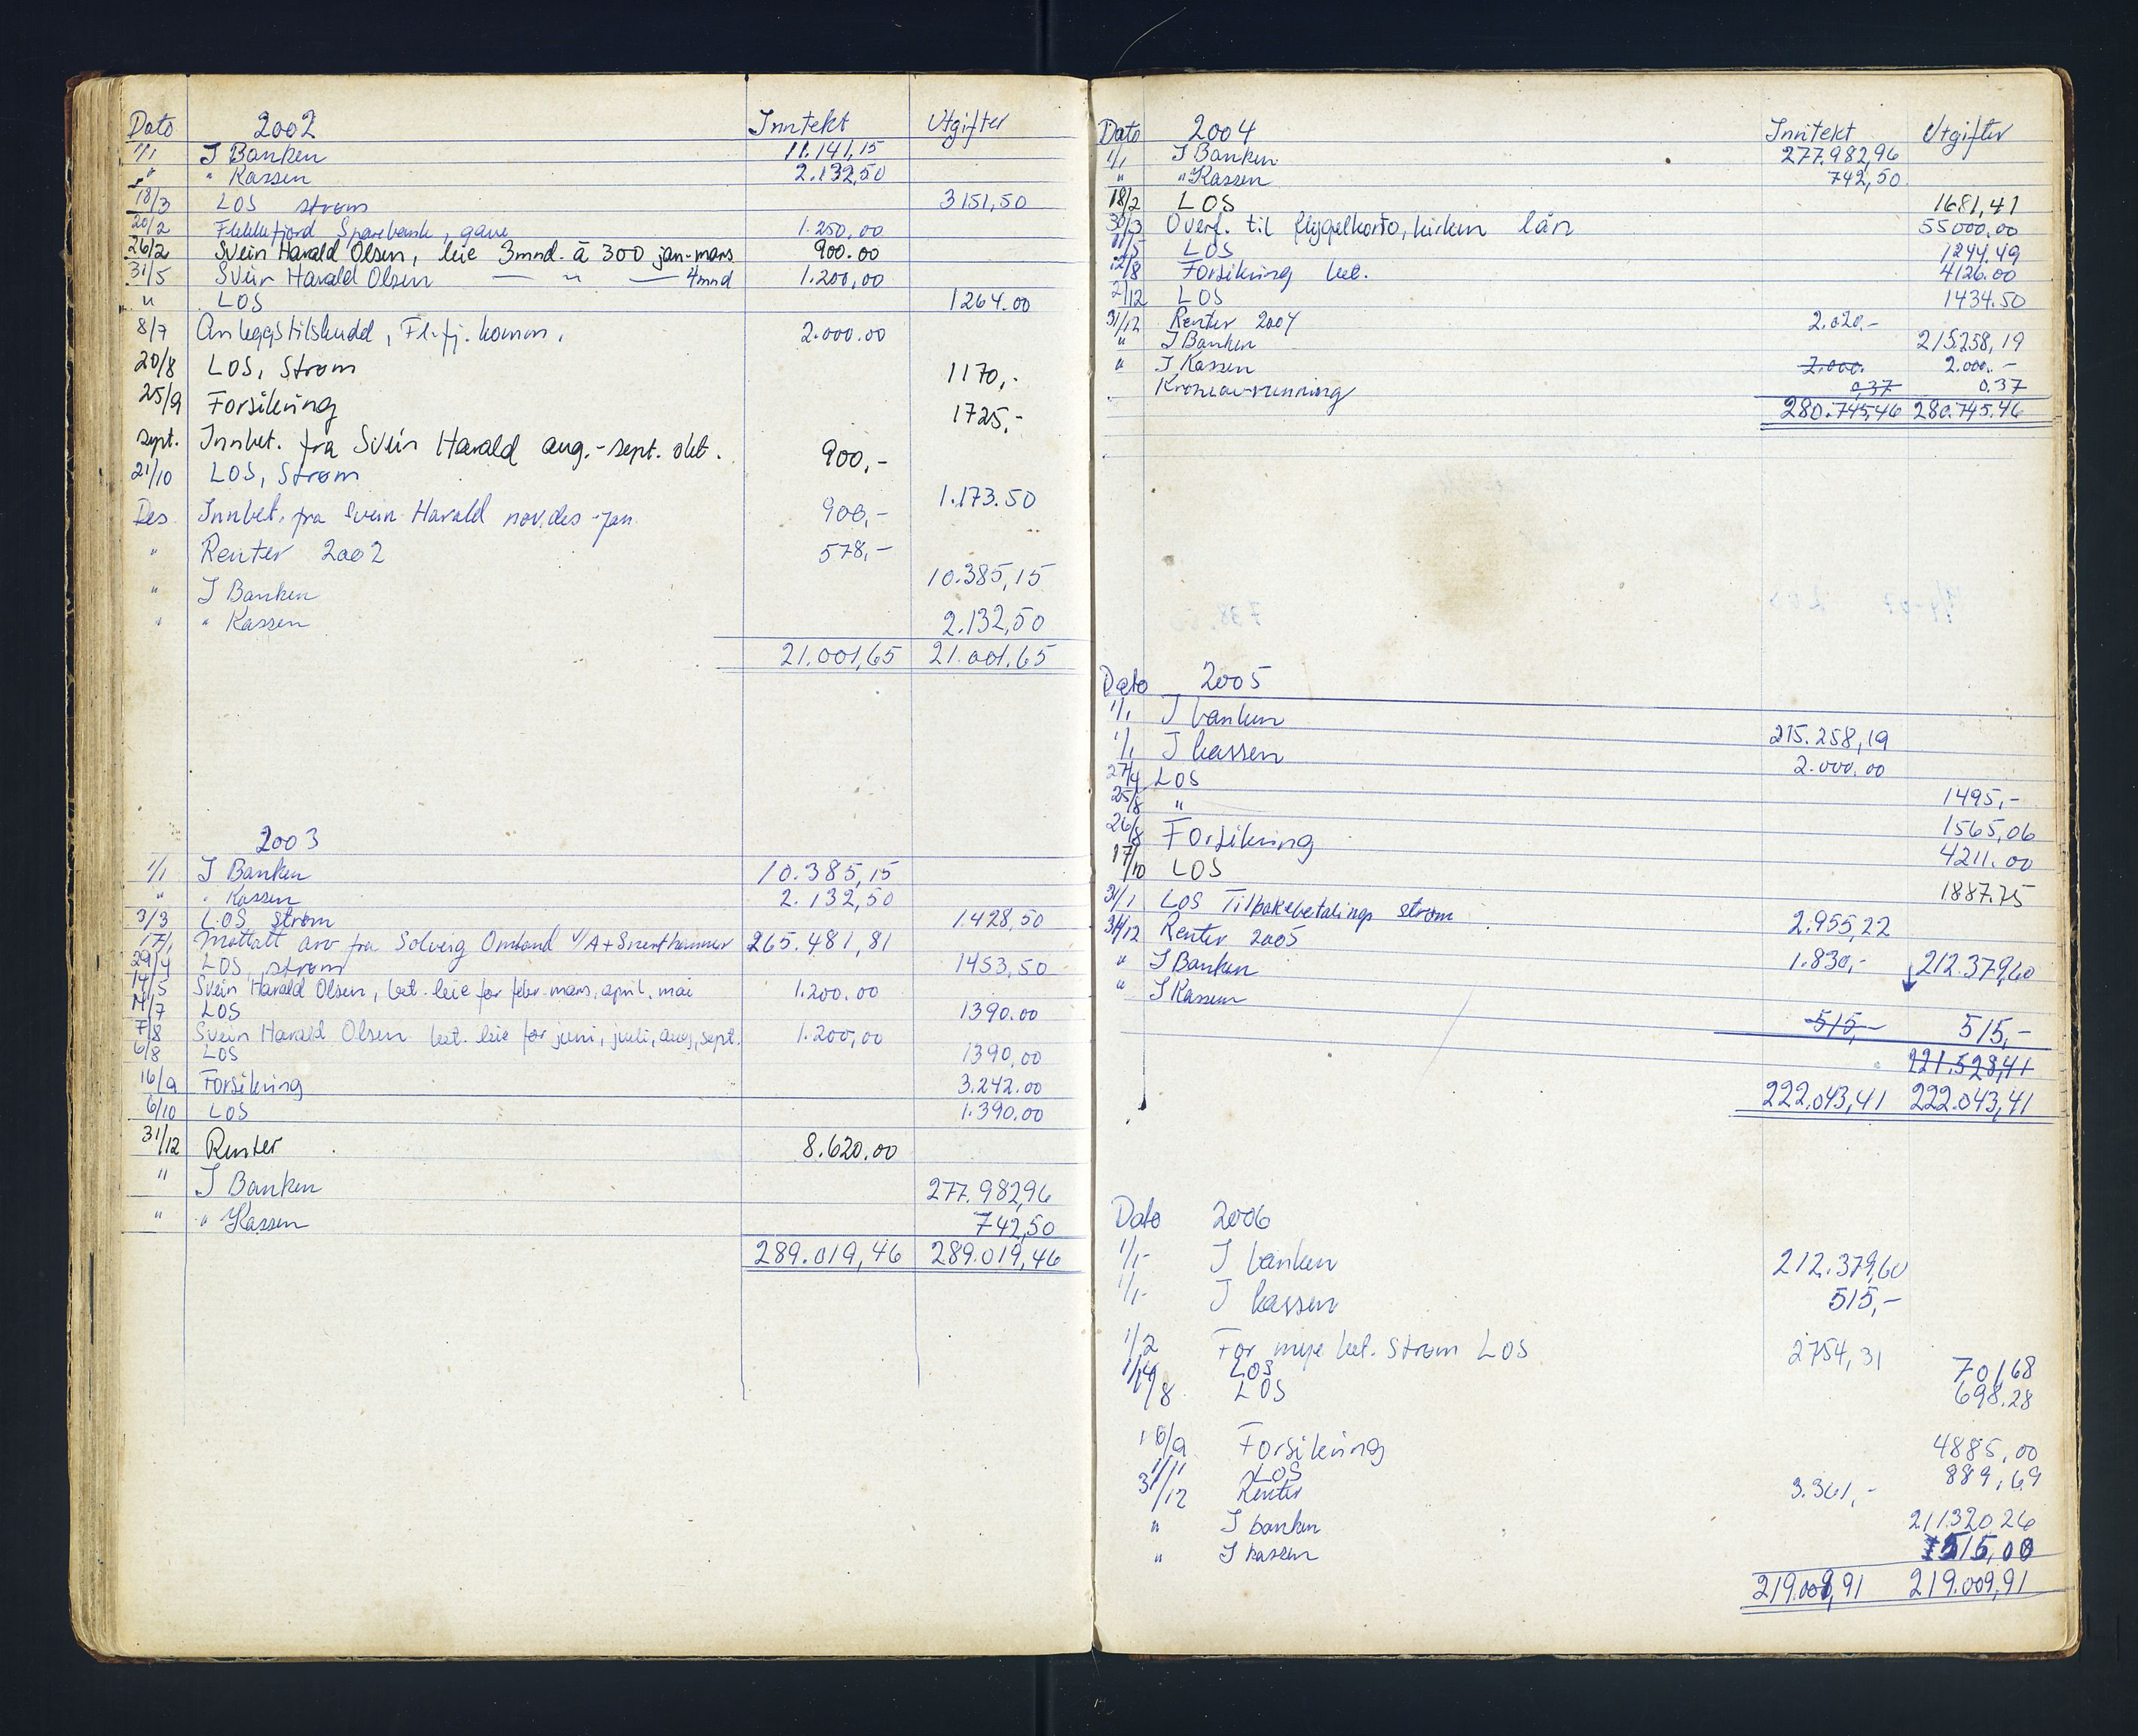 Dato 2002 Inntekt Utgifter
1/1 I Banken 11.141,15
" " Kassen 2.132,50
18/3 LOS strøm 3151,50
20/2 Flekkefjord Sparebank, gave 1.250,00
26/2 Svein Harald Olsen, leie 3mnd. á 300 jan-mars 900.00
31/5 Svein Harald Olsen — " — 4mnd 1.200,00
" LOS 1264.00
8/7 Anleggstilskudd, Fl.fj. komm. 2.000.00
20/8 LOS, Strøm 1170,-
25/9 Forsikring 1725,-
sept. Innbet. fra Svein Harald aug.-sept. okt. 900,-
21/10 LOS, Strøm 1.173.50
Des Innbet. fra Svein Harald nov.des-jan 900,-
" Renter 2002 578,-
" I Banken 10.385,15
" " Kassen 2.132,50
21.001,65 21.001.65
2003
1/1 I Banken 10.385,15
" " Kassen 2.132,50
3/3 LOS, strøm 1428,50
17/1 Mottatt arv fra Solveig Omland v/A+ 265.481,81
29/4 LOS, strøm 1453,50
14/5 Svein Harald Olsen, bet. leie for febr. mars, april, mai 1.200.00
/7 LOS 1390.00
7/8 Svein Harald Olsen bet. leie for juni, juli, aug, sept. 1.200,00
6/8 LOS 1390,00
16/9 Forsikring 3.242.00
6/10 LOS 1.390.00
31/12 Renter 8.620.00
" I Banken 277.982,96
" " Kassen 742,50
289.019,46 289.019,46
Dato 2004 Inntekt Utgifter
1/1 I Banken 277.982,96
" " Kassen 742,50
18/2 LOS 1681,41
30/3 Overf. til flygelkonto, kirken lån 55000.00
11/5 LOS 1244.49
12/8 Forsikring bet. 4126.00
2/12 LOS 1434.50
31/12 Renter 2004 2.020,-
" I Banken 215258,19
" I Kassen 2.000. 2.000.-
Kroneavrunning 0,37 0.37
280.745,46 280.745.46
Dato 2005
1/1 I banken 215.258,19
1/1 I kassen 2.000.00
27/4 LOS 1495,-
25/8 " 1565,06
26/8 Forsikring 4211.00
17/10 LOS 1887.75
31/1 LOS Tilbakebetaling strøm 2.955,22
31/12 Renter 2005 1.830,-
" I Banken 212.379,60
" I Kassen 515,- 515,-
221.528,41
222.043,41 222.043,41
Dato 2006
1/1- I banken 212.379,60
1/1- I kassen 515,-
1/2 For mye bet. Strøm LOS 2754,31
LOS 701,68
/8 LOS 698.28
16/9 Forsikring 4885,00
1/11 LOS 889,69
31/12 Renter 3.361,-
" I banken 211320.26
" I kassen 515,00
219.009,91 219.009,91